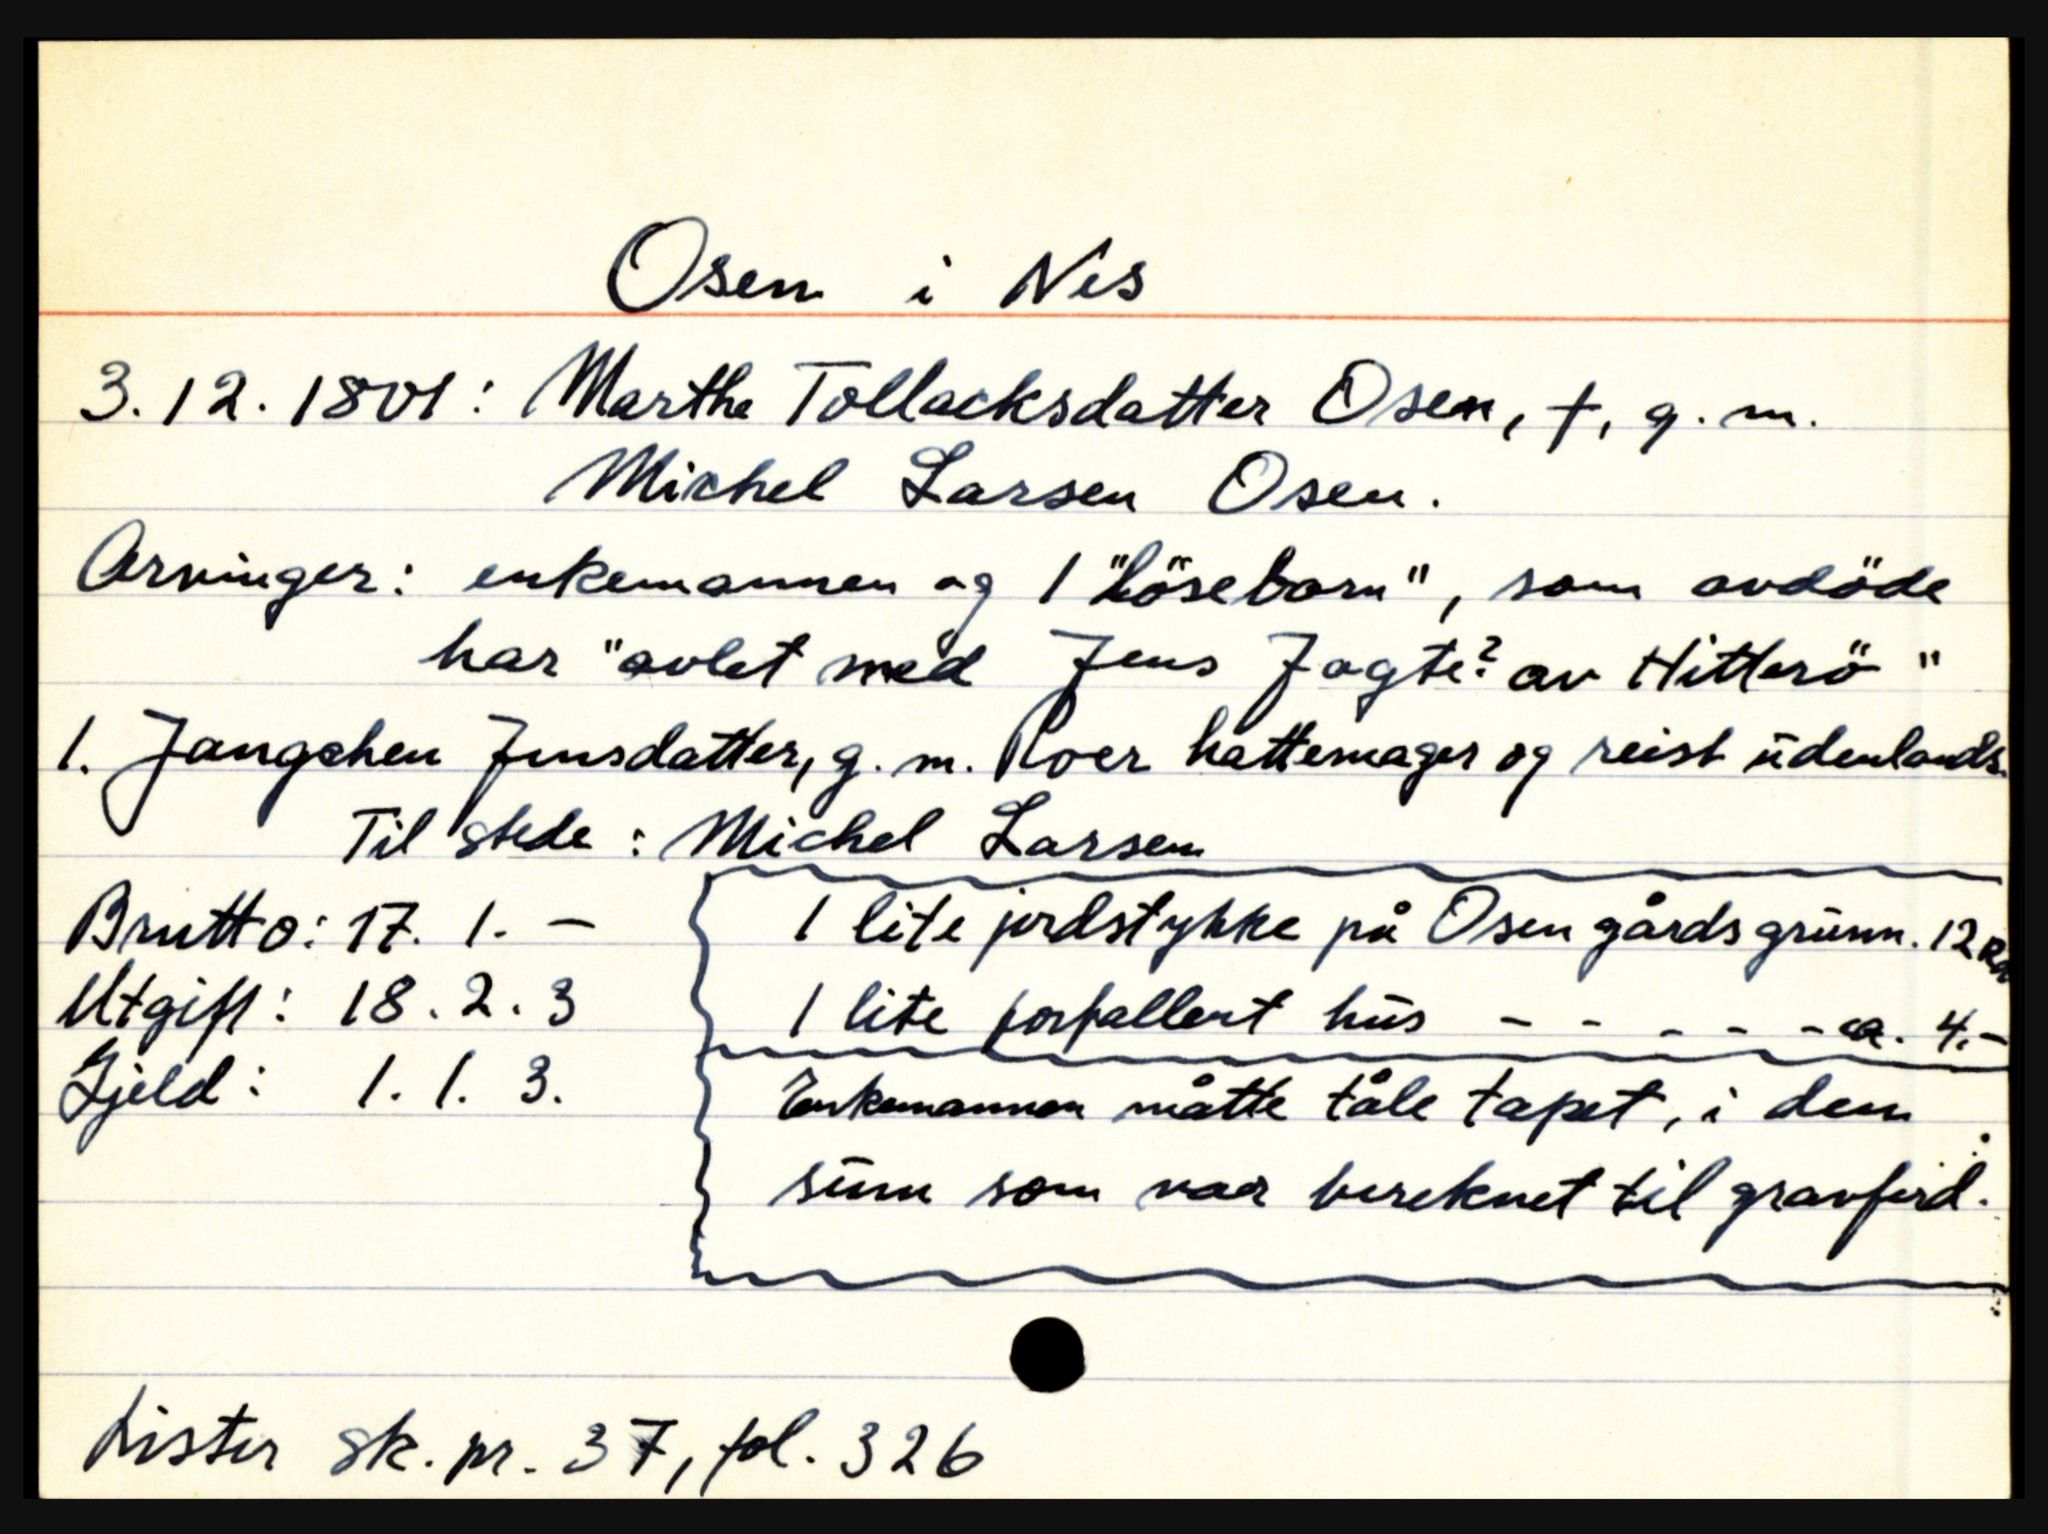 Osen i Nes
3.12.1801: Marthe Tollacksdatter Osen, †, g. m.
Michel Larsen Osen.
Arvinger: enkemannen og 1 "lösebarn", som avdöde
har "avlet med Jens Jagte? av Hitterö"
1. Jangchen Jensdatter, g. m. Roer hattemager og reist ūdenlands.
Til stede: Michel Larsen
Brutto: 17. 1. –
Utgift: 18. 2. 3
Gjeld: 1. 1. 3.
1 lite jordstykke på Osen gårds grūnn. 12 Rd
1 lite forfallent hūs - - - - - ca. 4.–
Enkemannen måtte tåle tapet, i den
sūm som var bereknet til gravferd.
Lister sk. pr. 37, fol. 326